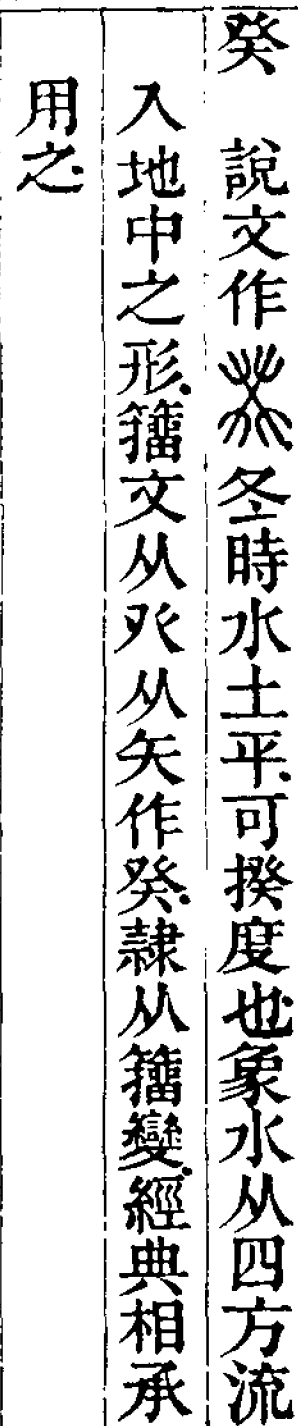 癸　說文作𤼩冬時水土平可揆度也象水从四方流
入地中之形籒文从癶从矢作癸隷从籒變經典相承
用之